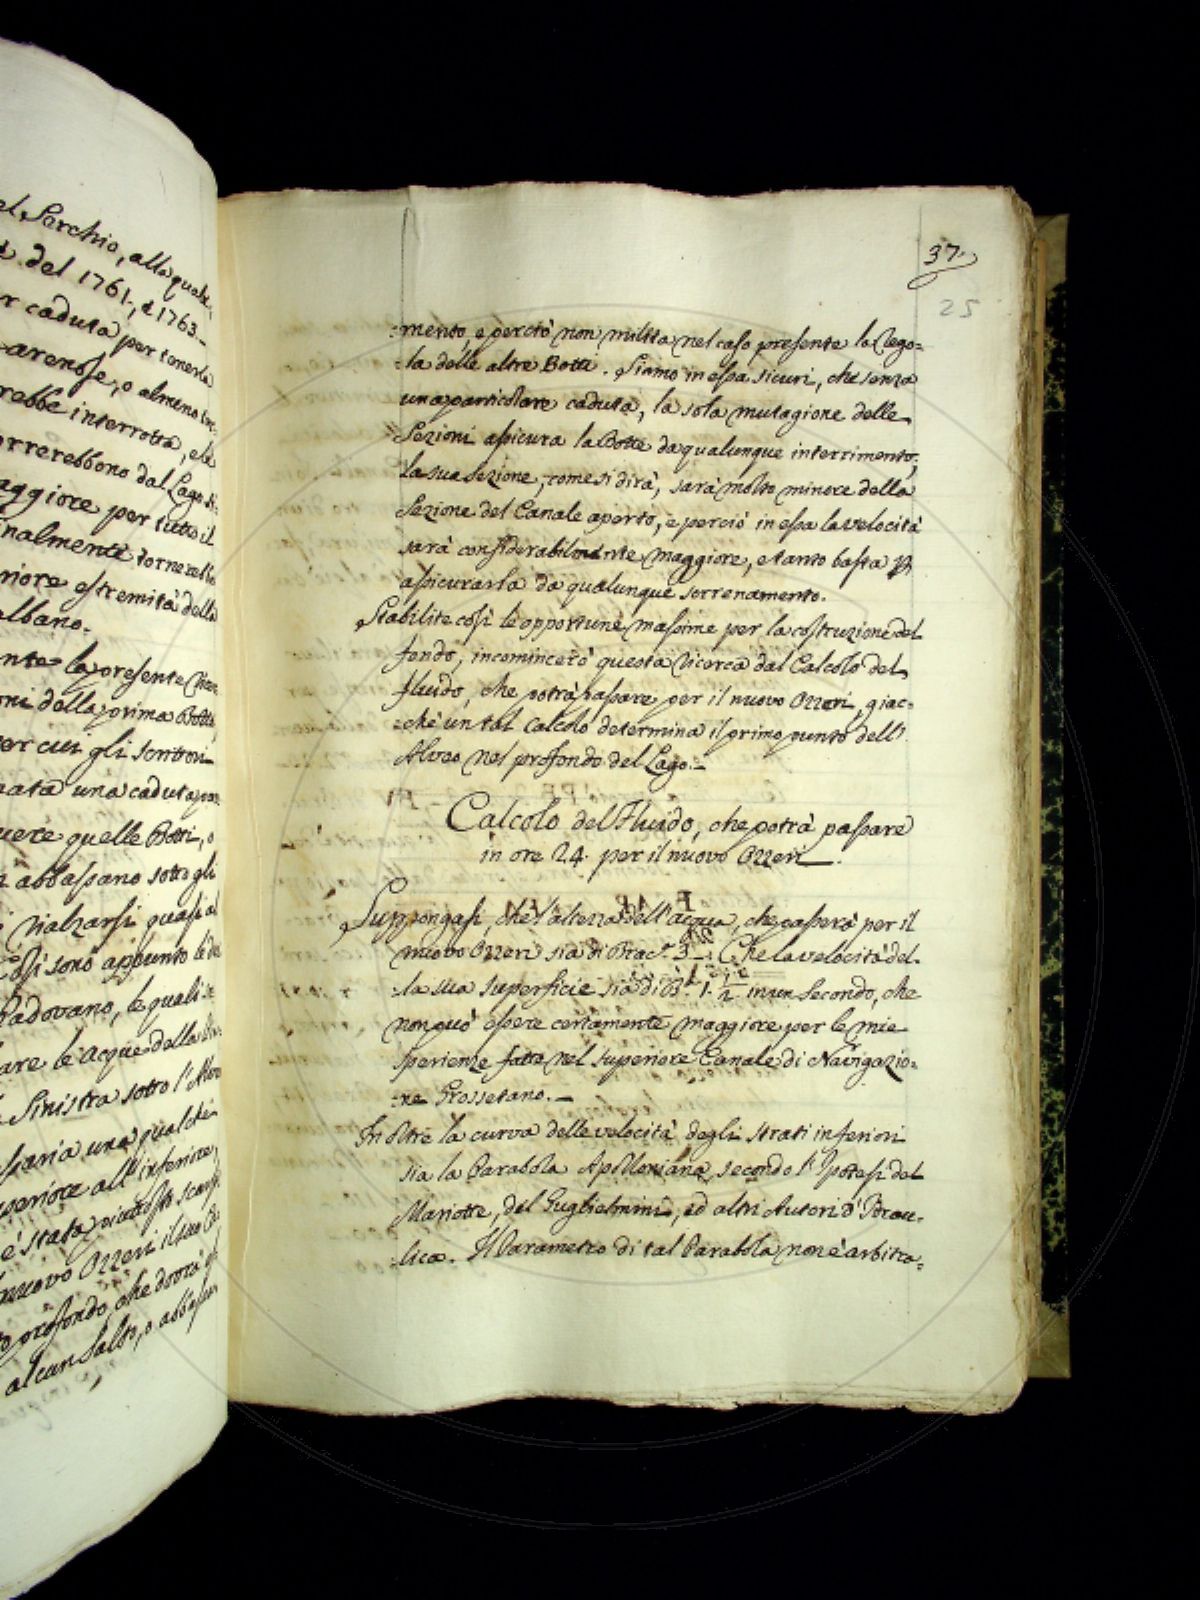 el Serchio, alla quale
del 1761., e 1763.
r caduta per tenerla
arenose, o almeno
rebbe interrotta, e le
orrerebbono dal Lago
aggiore per tutto il
inalmente
riore estremità della
albano.
nte la presente
oni della prima Botte,
per cui gli scrittori
nata una caduta
vere quelle Botti, o
abbassano sotto gli
rialzarsi quasi al
sono appunto le
Padovano, le quali
are le acque della
Sinistra sotto l'Alveo
saria una qualche
periore all'inferiore,
è stata piuttosto
nuovo Ozzeri il suo
profondo, che dovrà
alcun salto, o
37.
25
:mento, e perciò non milita nel caso presente la rego=
:la delle altre Botti. Siamo in essa sicuri, che senza
una particolare caduta, la sola mutazione delle
Sezioni assicura la Botte da qualunque interrimento;
La sua sezione, come si dirà, sarà molto minore della
Sezione del Canale aperto, e perciò in essa la velocità
sarà considerabilmente maggiore, e tanto basta p
assicurarla da qualunque serrenamento.
Stabilite così le opportune massime per la costruzione del
fondo, incomincerò questa ricerca dal Calcolo del
fluido, che potrà passare per il nuovo Ozzeri, giac=
:chè un tal calcolo determina il primo punto dell'
Alveo nel profondo del Lago.
Calcolo del Fluido, che potrà passare
in ore 24. per il nuovo Ozzeri.
Suppongasi, che l'altezza dell'acqua, che passerà per il
nuovo Ozzeri sia di Brac.ª 3. Che la velocità del
:la sua superficie sia di B.ª 1. 1/2 in un secondo, che
non può essere certamente maggiore per le mie
sperienze fatte nel superiore Canale di Navigazio=
:ne Grossetano.
In oltre la curva delle velocità degli strati inferiori
sia la Parabola Apolloniana, secondo l'Ipotesi del
Mariotte, del Guglielmini, ed altri Autori d'Idrau=
:lica. Il Parametro di tal Parabola non è arbitra=